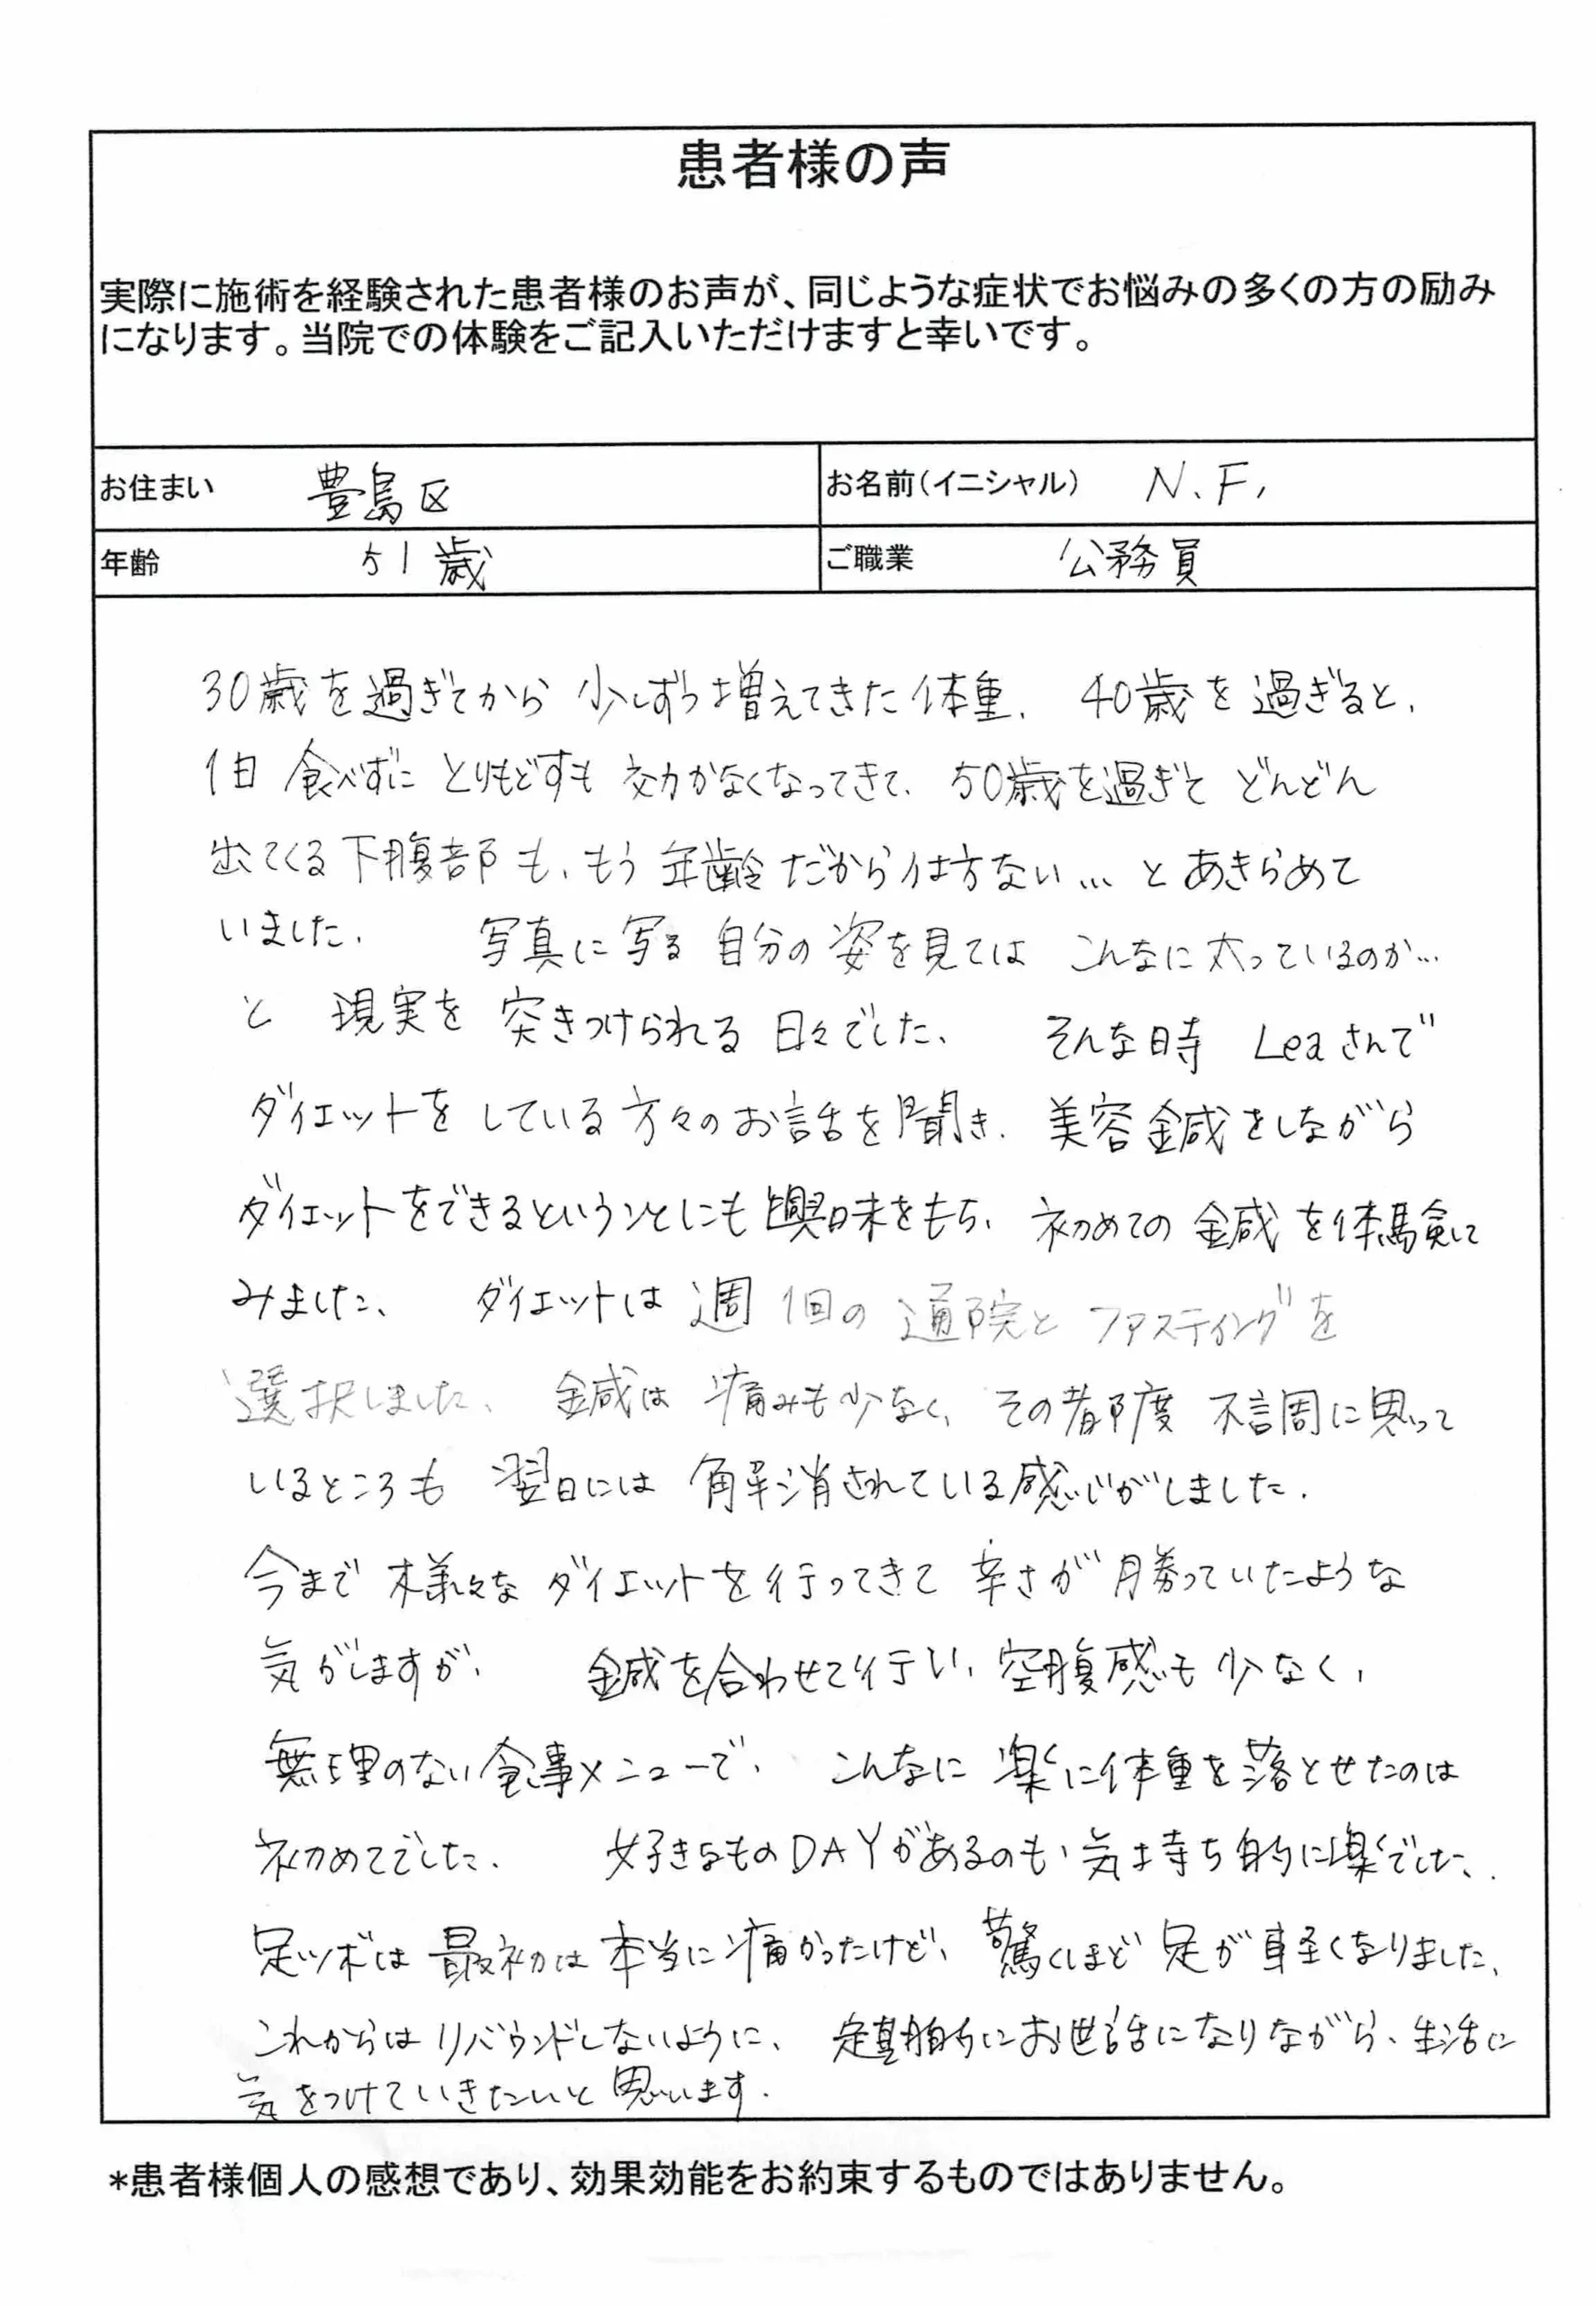 患者様の声
実際に施術を経験された患者様のお声が、同じような症状でお悩みの多くの方の励み
になります。当院での体験をご記入いただけますと幸いです。
お住まい 豊島区 お名前(イニシャル) N.F.
年齢 51歳 ご職業 公務員
30歳を過ぎてから少しずつ増えてきた体重、40歳を過ぎると、
1日食べずにとりもどすも効力がなくなってきて、50歳を過ぎてどんどん
出てくる下腹部も、もう年齢だから仕方ない…とあきらめて
いました。 写真に写る自分の姿を見てはこんなに太っているのか…
と現実を突きつけられる日々でした。 そんな時Leaさんで
ダイエットをしている方々のお話を聞き、美容鍼をしながら
ダイエットをできるということにも興味をもち、初めての鍼を体験して
みました。 ダイエットは週1回の通院とファスティングを
選択しました。 鍼は痛みも少なく、その都度不調に思って
いるところも翌日には解消されている感じがしました。
今まで様々なダイエットを行ってきて辛さが勝っていたような
気がしますが、 鍼を合わせて行い、空腹感も少なく、
無理のない食事メニューで、こんなに楽に体重を落とせたのは
初めてでした。 好きなものDAYがあるのも気持ち的に楽でした。
足ツボは最初は本当に痛かったけど、驚くほど足が軽くなりました。
これからはリバウンドしないように、定期的にお世話になりながら、生活に
気をつけていきたいと思います。
*患者様個人の感想であり、効果効能をお約束するものではありません。